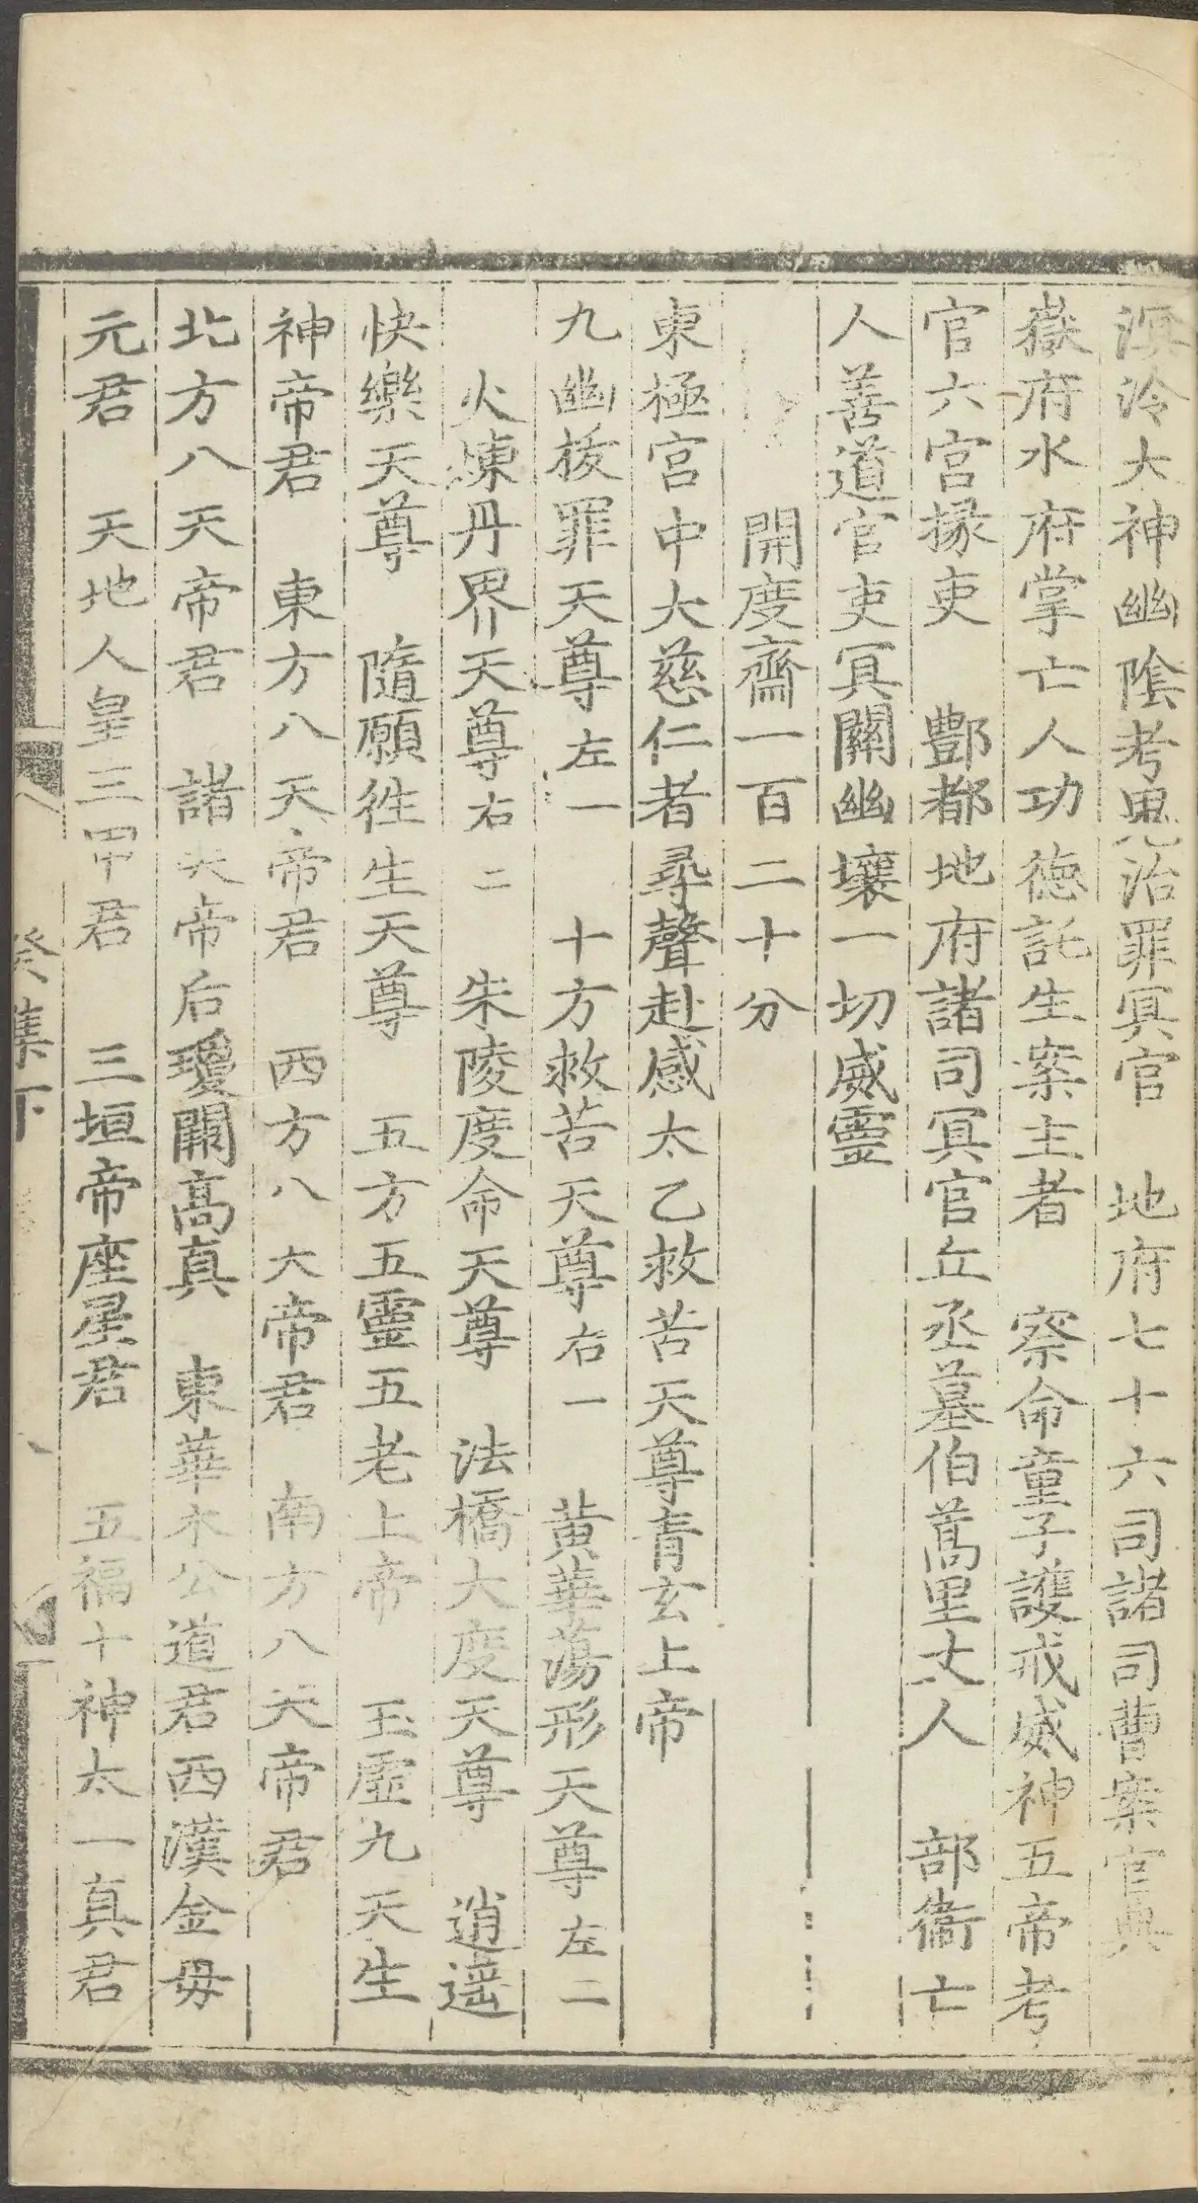 溟泠大神幽陰考鬼治罪冥官　地府七十六司諸司曹案官典
嶽府水府掌亡人功德託生案主者　察命童子護戒威神五帝考
官六宮掾吏　酆都地府諸司冥官丘丞墓伯蒿里丈人　部衞亡
人善道官吏冥關幽壤一切威靈
開度齋一百二十分
東極宮中大慈仁者尋聲赴感太乙救苦天尊青玄上帝
九幽拔罪天尊左一　十方救苦天尊右一　黃華蕩形天尊左二
火煉丹界天尊右二　朱陵度命天尊　法橋大度天尊　逍遥
快樂天尊　隨願徃生天尊　五方五靈五老上帝　玉虛九天生
神帝君　東方八天帝君　西方八大帝君　南方八天帝君
北方八天帝君　諸天帝后瓊闕高真　東華木公道君西漢金母
元君　天地人皇三甲君　三垣帝座星君　五福十神太一真君
癸集下